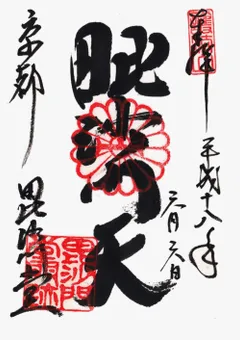 奉拝
平成十八年
六月六日
毘沙門天
京都
毘沙門堂
毘沙門